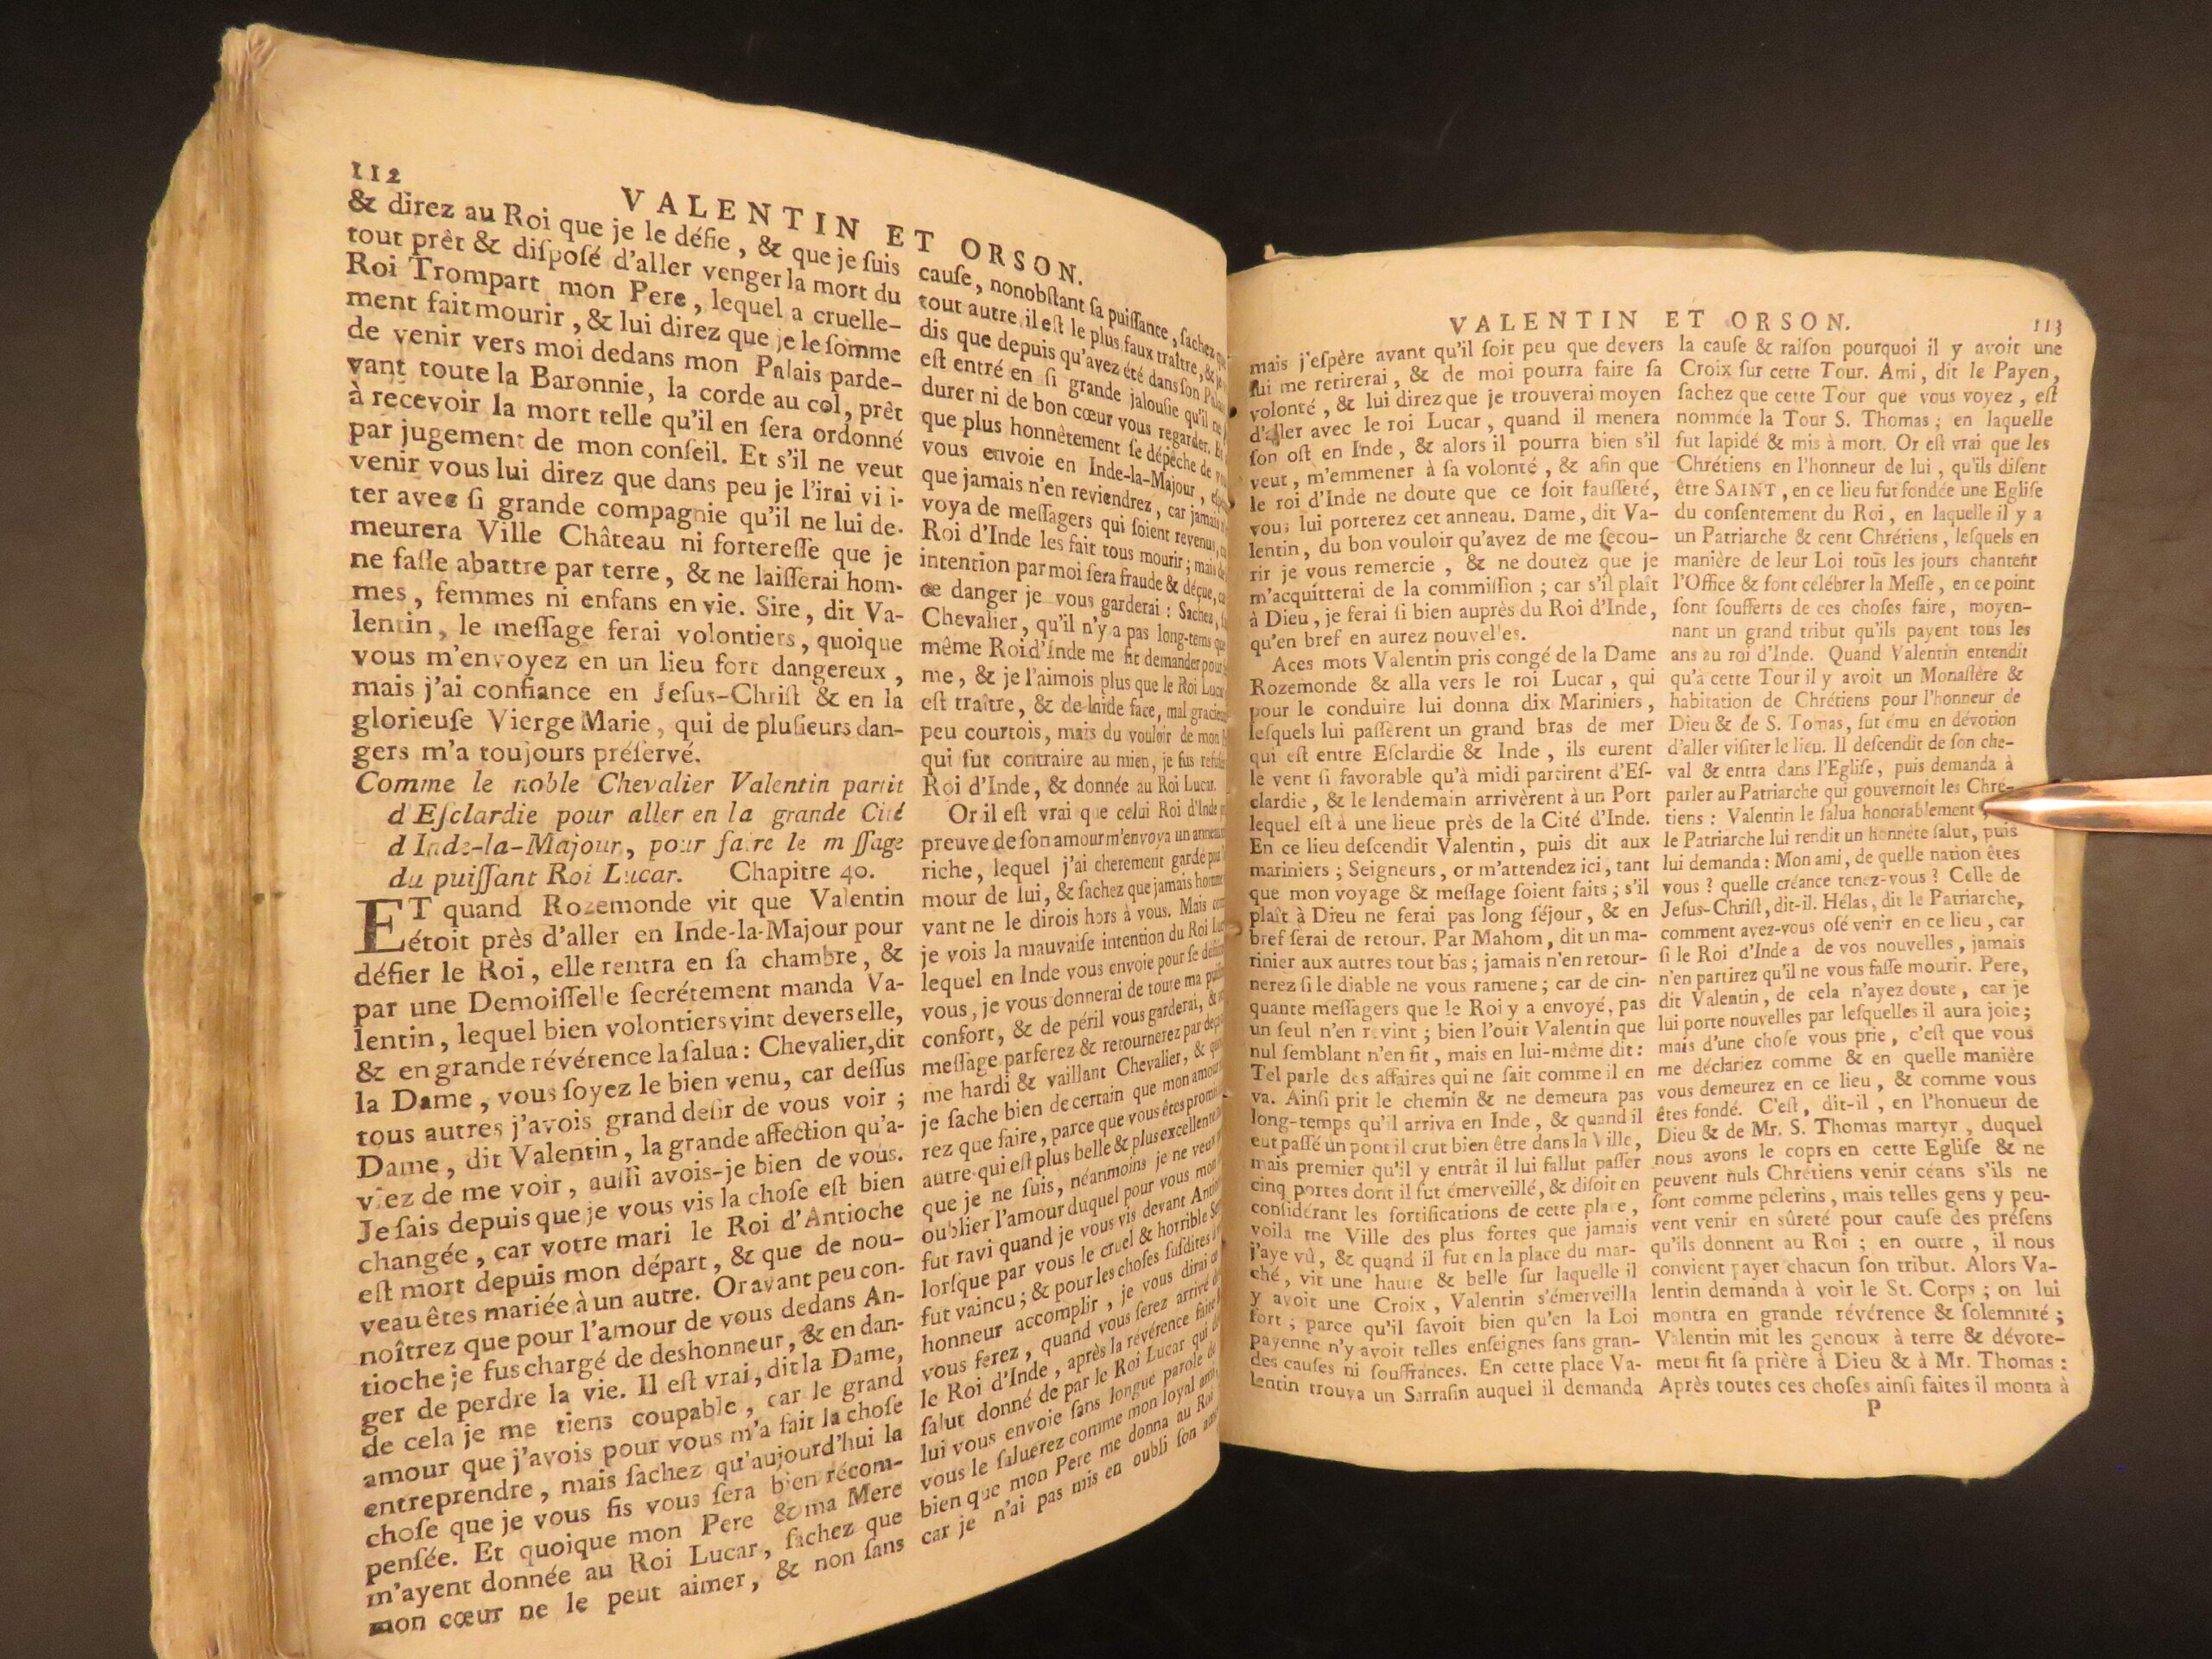 112
VALENTIN ET ORSON.
& direz au Roi que je le défie, & que je ſuis
tout prêt & diſpoſé d'aller venger la mort du
Roi Trompart mon Pere, lequel a cruelle-
ment fait mourir, & lui direz que je le ſomme
de venir vers moi dedans mon Palais parde-
vant toute la Baronnie, la corde au col, prêt
à recevoir la mort telle qu'il en ſera ordonné
par jugement de mon conſeil. Et s'il ne veut
venir vous lui direz que dans peu je l'irai vi i-
ter avec ſi grande compagnie qu'il ne lui de-
meurera Ville Château ni fortereſſe que je
ne faſſe abattre par terre, & ne laiſſerai hom-
mes, femmes ni enfans en vie. Sire, dit Va-
lentin, le meſſage ferai volontiers, quoique
vous m'envoyez en un lieu fort dangereux,
mais j'ai confiance en Jeſus-Chriſt & en la
glorieuſe Vierge Marie, qui de pluſieurs dan-
gers m'a toujours préſervé.
Comme le noble Chevalier Valentin partit
d'Eſclardie pour aller en la grande Cité
d'Inde-la-Majour, pour faire le m ſſage
du puiſſant Roi Lucar. Chapitre 40.
ET quand Rozemonde vit que Valentin
étoit près d'aller en Inde-la-Majour pour
défier le Roi, elle rentra en ſa chambre, &
par une Demoiſſelle ſecrétement manda Va-
lentin, lequel bien volontiers vint devers elle,
& en grande révérence la ſalua: Chevalier, dit
la Dame, vous ſoyez le bien venu, car deſſus
tous autres j'avois grand deſir de vous voir;
Dame, dit Valentin, la grande affection qu'a-
viez de me voir, auſſi avois-je bien de vous.
Je ſais depuis que je vous vis la choſe eſt bien
changée, car votre mari le Roi d'Antioche
eſt mort depuis mon départ, & que de nou-
veau êtes mariée à un autre. Or avant peu con-
noîtrez que pour l'amour de vous dedans An-
tioche je fus chargé de deshonneur, & en dan-
ger de perdre la vie. Il eſt vrai, dit la Dame,
de cela je me tiens coupable, car le grand
amour que j'avois pour vous m'a fait la choſe
entreprendre, mais ſachez qu'aujourd'hui la
choſe que je vous fis vous ſera bien récom-
penſée. Et quoique mon Pere & ma Mere
m'ayent donnée au Roi Lucar, ſachez que
mon cœur ne le peut aimer, & non ſans
cauſe, nonobſtant ſa puiſſance, ſachez
tout autre il eſt le plus faux traître, &
dis que depuis qu'avez été dans ſon
eſt entré en ſi grande jalouſie qu'il ne
durer ni de bon cœur vous regarder.
que plus honnêtement ſe dépêche de
vous envoie en Inde-la-Majour,
que jamais n'en reviendrez, car jamais
voya de meſſagers qui ſoient revenus,
Roi d'Inde les fait tous mourir; mais
intention par moi ſera fraude & déçue,
ce danger je vous garderai: Sachez,
Chevalier, qu'il n'y a pas long-tems que
même Roi d'Inde me fit demander pour
me, & je l'aimois plus que le Roi Lucar
eſt traître, & de laide face, mal gracieux
peu courtois, mais du vouloir de mon
qui fut contraire au mien, je fus refuſée
Roi d'Inde, & donnée au Roi Lucar.
Or il eſt vrai que celui Roi d'Inde
preuve de ſon amour m'envoya un anneau
riche, lequel j'ai cherement gardé
mour de lui, & ſachez que jamais homme
vant ne le dirois hors à vous. Mais
je vois la mauvaiſe intention du Roi
lequel en Inde vous envoie pour ſe
vous, je vous donnerai de toute ma
confort, & de péril vous garderai, &
meſſage parferez & retournerez par
me hardi & vaillant Chevalier, &
je ſache bien de certain que mon amour
rez que faire, parce que vous êtes
autre qui eſt plus belle & plus excellente
que je ne ſuis, néanmoins je ne veux
oublier l'amour duquel pour vous mon
fut ravi quand je vous vis devant
lorſque par vous le cruel & horrible
fut vaincu; & pour les choſes ſuſdites
honneur accomplir, je vous dirai
vous ferez, quand vous ſerez arrivé
le Roi d'Inde, après la révérence faite
ſalut donné de par le Roi Lucar qui
lui vous envoie ſans longue parole
vous le ſaluerez comme mon loyal ami,
bien que mon Pere me donna au Roi
car je n'ai pas mis en oubli ſon
VALENTIN ET ORSON.
113
mais j'eſpère avant qu'il ſoit peu que devers
lui me retirerai, & de moi pourra faire ſa
volonté, & lui direz que je trouverai moyen
d'aller avec le roi Lucar, quand il menera
ſon oſt en Inde, & alors il pourra bien s'il
veut, m'emmener à ſa volonté, & afin que
le roi d'Inde ne doute que ce ſoit fauſſeté,
vous lui porterez cet anneau. Dame, dit Va-
lentin, du bon vouloir qu'avez de me ſecou-
rir je vous remercie, & ne doutez que je
m'acquitterai de la commiſſion; car s'il plaît
à Dieu, je ferai ſi bien auprès du Roi d'Inde,
qu'en bref en aurez nouvelles.
A ces mots Valentin pris congé de la Dame
Rozemonde & alla vers le roi Lucar, qui
pour le conduire lui donna dix Mariniers,
leſquels lui paſſèrent un grand bras de mer
qui eſt entre Eſclardie & Inde, ils eurent
le vent ſi favorable qu'à midi partirent d'Eſ-
clardie, & le lendemain arrivèrent à un Port
lequel eſt à une lieue près de la Cité d'Inde.
En ce lieu deſcendit Valentin, puis dit aux
mariniers; Seigneurs, or m'attendez ici, tant
que mon voyage & meſſage ſoient faits; s'il
plaît à Dieu ne ferai pas long ſéjour, & en
bref ſerai de retour. Par Mahom, dit un ma-
rinier aux autres tout bas; jamais n'en retour-
nerez ſi le diable ne vous ramene; car de cin-
quante meſſagers que le Roi y a envoyé, pas
un ſeul n'en revint; bien l'ouit Valentin que
nul ſemblant n'en fit, mais en lui-même dit:
Tel parle des affaires qui ne ſait comme il en
va. Ainſi prit le chemin & ne demeura pas
long-temps qu'il arriva en Inde, & quand il
eut paſſé un pont il crut bien être dans la Ville,
mais premier qu'il y entrât il lui fallut paſſer
cinq portes dont il fut émerveillé, & diſoit en
conſidérant les fortifications de cette place,
voilà une Ville des plus fortes que jamais
j'aye vû, & quand il fut en la place du mar-
ché, vit une haute & belle ſur laquelle il
y avoit une Croix, Valentin s'émerveilla
fort; parce qu'il ſavoit bien qu'en la Loi
payenne n'y avoit telles enſeignes ſans gran-
des cauſes ni ſouffrances. En cette place Va-
lentin trouva un Sarraſin auquel il demanda
la cauſe & raiſon pourquoi il y avoit une
Croix ſur cette Tour. Ami, dit le Payen,
ſachez que cette Tour que vous voyez, eſt
nommée la Tour S. Thomas; en laquelle
fut lapidé & mis à mort. Or eſt vrai que les
Chrétiens en l'honneur de lui, qu'ils diſent
être SAINT, en ce lieu fut fondée une Egliſe
du conſentement du Roi, en laquelle il y a
un Patriarche & cent Chrétiens, leſquels en
manière de leur Loi tous les jours chantent
l'Office & font célébrer la Meſſe, en ce point
ſont ſoufferts de ces choſes faire, moyen-
nant un grand tribut qu'ils payent tous les
ans au roi d'Inde. Quand Valentin entendit
qu'à cette Tour il y avoit un Monaſtère &
habitation de Chrétiens pour l'honneur de
Dieu & de S. Tomas, fut ému en dévotion
d'aller viſiter le lieu. Il deſcendit de ſon che-
val & entra dans l'Egliſe, puis demanda à
parler au Patriarche qui gouvernoit les Chré-
tiens: Valentin le ſalua honorablement,
le Patriarche lui rendit un honnête ſalut, puis
lui demanda: Mon ami, de quelle nation êtes
vous? quelle créance tenez-vous? Celle de
Jeſus-Chriſt, dit-il. Hélas, dit le Patriarche,
comment avez-vous oſé venir en ce lieu, car
ſi le Roi d'Inde a de vos nouvelles, jamais
n'en partirez qu'il ne vous faſſe mourir. Pere,
dit Valentin, de cela n'ayez doute, car je
lui porte nouvelles par leſquelles il aura joie;
mais d'une choſe vous prie, c'eſt que vous
me déclariez comme & en quelle manière
vous demeurez en ce lieu, & comme vous
êtes fondé. C'eſt, dit-il, en l'honueur de
Dieu & de Mr. S. Thomas martyr, duquel
nous avons le coprs en cette Egliſe & ne
peuvent nuls Chrétiens venir céans s'ils ne
ſont comme pélerins, mais telles gens y peu-
vent venir en ſûreté pour cauſe des préſens
qu'ils donnent au Roi; en outre, il nous
convient payer chacun ſon tribut. Alors Va-
lentin demanda à voir le St. Corps; on lui
montra en grande révérence & ſolemnité;
Valentin mit les genoux à terre & dévote-
ment fit ſa prière à Dieu & à Mr. Thomas:
Après toutes ces choſes ainſi faites il monta à
P